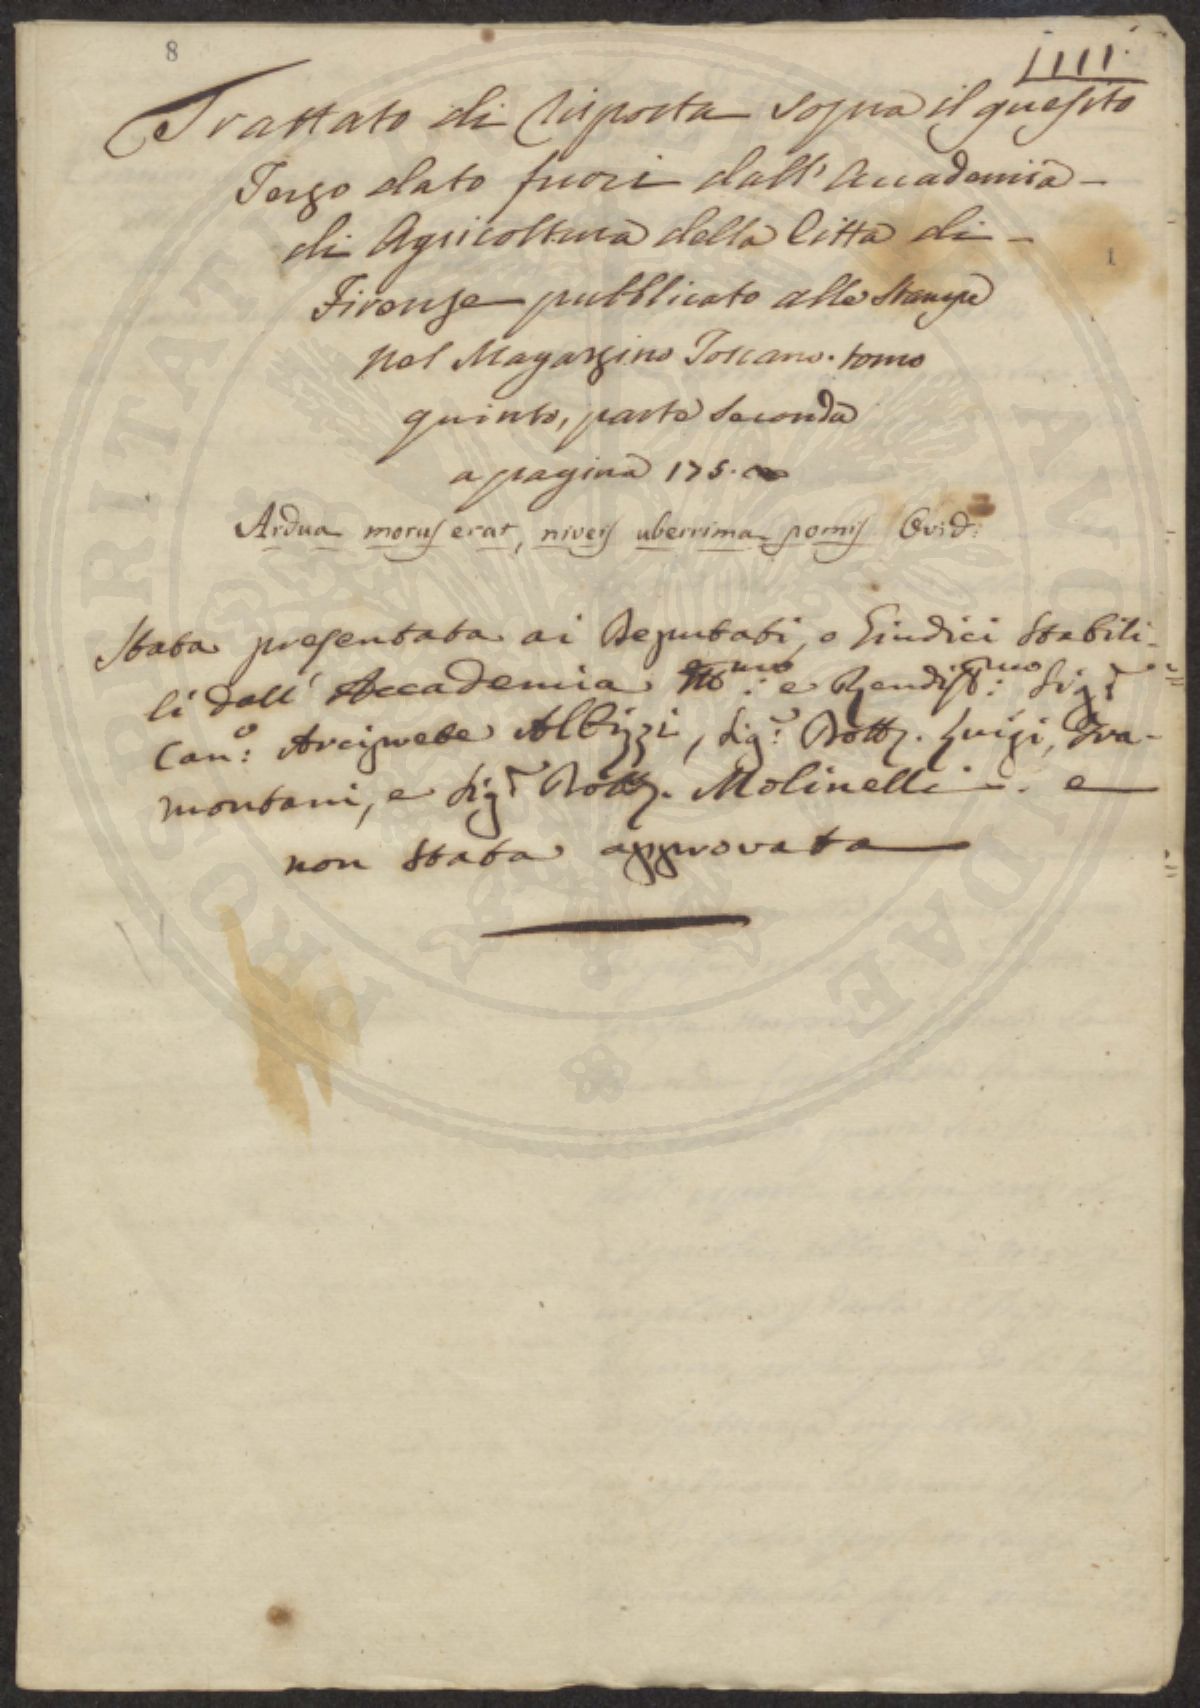 8
IIII
Trattato di Risposta sopra il quesito
Terzo dato fuori dall' Accademia
di Agricoltura della Città di
Firenze pubblicato alle Stampe
nel Magazzino Toscano. tomo
quinto, parte Seconda
a pagina 175.
1
Ardua morus erat, niveis uberrima pomis Ovid:
Stata presentata ai Deputati, e Giudici Stabili-
li dell' Accademia Ill.mo: e Rendiss:mo Sig.r
Can.o: Arciprete Albizzi, Sig.r: Dott. Luigi, Tra-
montani, e Sig.r Dott. Molinelli. e
non stata approvata
PROSPERITATI PUBLICAE